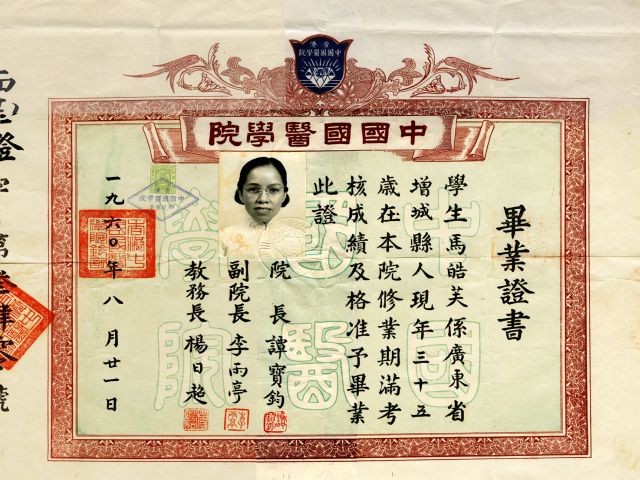 香港
中國國醫學院
中國國醫學院
畢業證書
學生馬皓芙係廣東省
增城縣人現年三十五
歲在本院修業期滿考
核成績及格准予畢業
此證
院長譚寶鈞
副院長李雨亭
教務長楊日超
一九六〇年八月廿一日
中國國醫學院
中國國醫學院
證字第
號